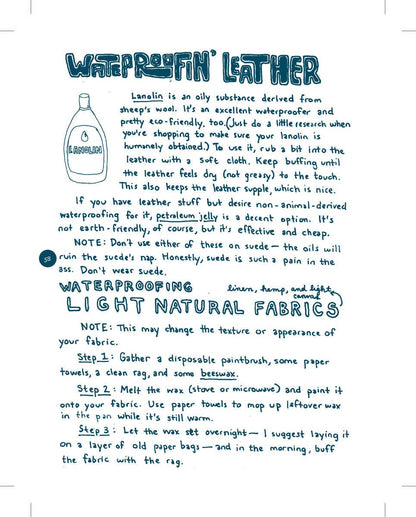 WATERPROOFIN' LEATHER
Lanolin is an oily substance derived from
sheep's wool. It's an excellent waterproofer and
pretty eco-friendly, too. (Just do a little research when
you're shopping to make sure your lanolin is
humanely obtained.) To use it, rub a bit into the
leather with a soft cloth. Keep buffing until
the leather feels dry (not greasy) to the touch.
This also keeps the leather supple, which is nice.
LANOLIN
If you have leather stuff but desire non-animal-derived
waterproofing for it, petroleum jelly is a decent option. It's
not earth-friendly, of course, but it's effective and cheap.
NOTE: Don't use either of these on suede — the oils will
58 ruin the suede's nap. Honestly, suede is such a pain in the
ass. Don't wear suede.
WATERPROOFING linen, hemp, and light canvas
LIGHT NATURAL FABRICS
NOTE: This may change the texture or appearance of
your fabric.
Step 1: Gather a disposable paintbrush, some paper
towels, a clean rag, and some beeswax.
Step 2: Melt the wax (stove or microwave) and paint it
onto your fabric. Use paper towels to mop up leftover wax
in the pan while it's still warm.
Step 3: Let the wax set overnight — I suggest laying it
on a layer of old paper bags — and in the morning, buff
the fabric with the rag.